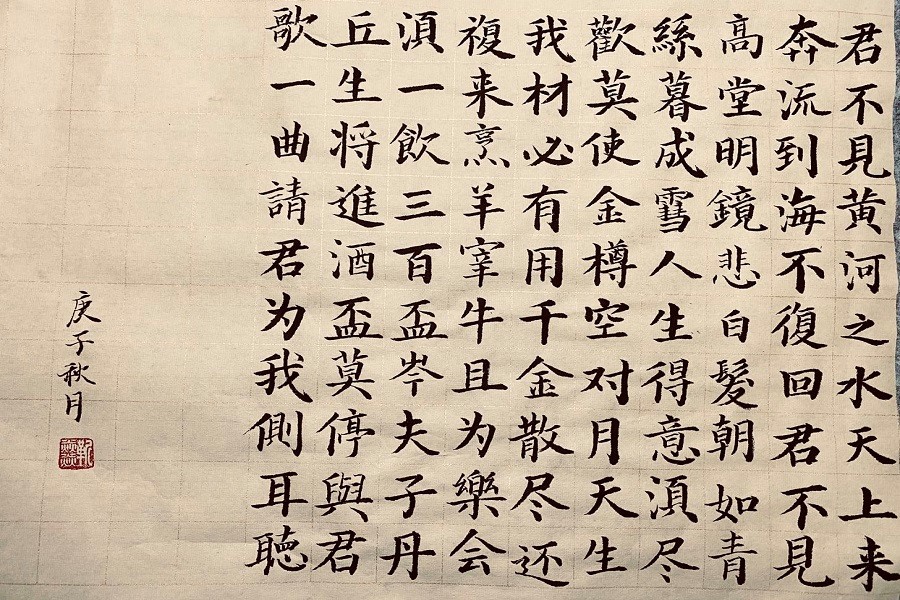 君不見黄河之水天上来
奔流到海不復回君不見
高堂明鏡悲白髮朝如青
絲暮成雪人生得意湏尽
歡莫使金樽空对月天生
我材必有用千金散尽还
複来烹羊宰牛且为樂会
湏一飲三百盃岑夫子丹
丘生将進酒盃莫停與君
歌一曲請君为我側耳聴
庚子秋月